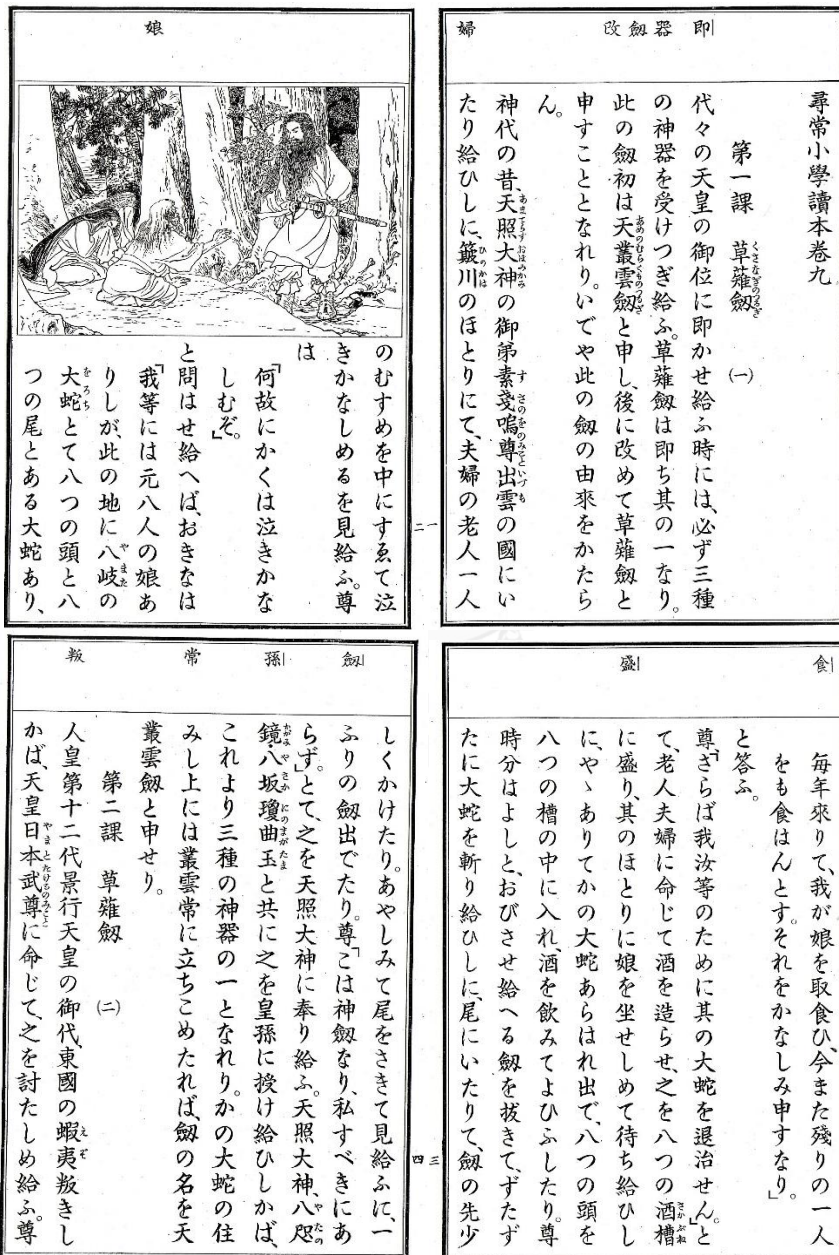 即 器 劔 改
婦
尋常小學讀本卷九
第一課 草薙劔 (一)
代々の天皇の御位に即かせ給ふ時には、必ず三種
の神器を受けつぎ給ふ。草薙劔は即ち其の一なり。
此の劔初は天叢雲劔と申し、後に改めて草薙劔と
申すこととなれり。いでや此の劔の由來をかたら
ん。
神代の昔、天照大神の御弟素戔嗚尊出雲の國にい
たり給ひしに、簸川のほとりにて、夫婦の老人一人
一
娘
のむすめを中にすゑて泣
きかなしめるを見給ふ。尊
は
「何故にかくは泣きかな
しむぞ。」
と問はせ給へば、おきなは
「我等には元八人の娘あ
りしが、此の地に八岐の
大蛇とて八つの頭と八
つの尾とある大蛇あり、
二
食
盛
毎年來りて、我が娘を取食ひ、今また殘りの一人
をも食はんとす。それをかなしみ申すなり。」
と答ふ。
尊「さらば我汝等のために其の大蛇を退治せん。」と
て、老人夫婦に命じて酒を造らせ、之を八つの酒槽
に盛り、其のほとりに娘を坐せしめて待ち給ひし
に、やゝありてかの大蛇あらはれ出で、八つの頭を
八つの槽の中に入れ、酒を飲みてよひふしたり。尊
時分はよしと、おびさせ給へる劔を拔きて、ずたず
たに大蛇を斬り給ひしに、尾にいたりて、劔の先少
三
劔
孫
常
叛
しくかけたり。あやしみて尾をさきて見給ふに、一
ふりの劔出でたり。尊「こは神劔なり、私すべきにあ
らず。」とて、之を天照大神に奉り給ふ。天照大神、八咫
鏡・八坂瓊曲玉と共に之を皇孫に授け給ひしかば、
これより三種の神器の一となれり。かの大蛇の住
みし上には叢雲常に立ちこめたれば、劔の名を天
叢雲劔と申せり。
第二課 草薙劔 (二)
人皇第十二代景行天皇の御代、東國の蝦夷叛きし
かば、天皇日本武尊に命じて、之を討たしめ給ふ。尊
四